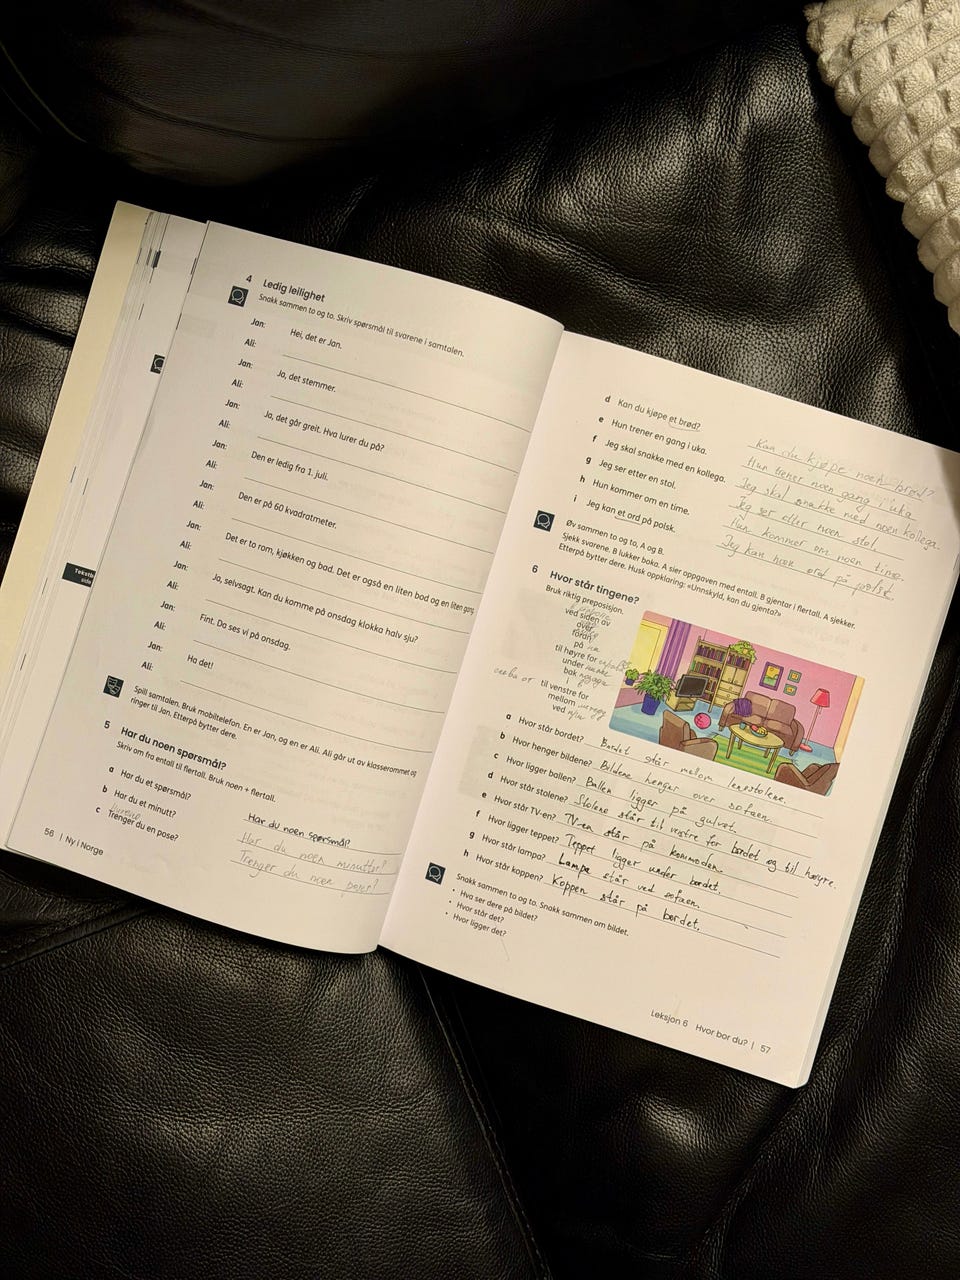 4 Ledig leilighet
Snakk sammen to og to. Skriv spørsmål til svarene i samtalen.
Jan: Hei, det er Jan.
Ali:
Jan: Ja, det stemmer.
Ali:
Jan: Ja, det går greit. Hva lurer du på?
Ali:
Jan: Den er ledig fra 1. juli.
Ali:
Jan: Den er på 60 kvadratmeter.
Ali:
Jan: Det er to rom, kjøkken og bad. Det er også en liten bod og en liten gang
Ali:
Jan: Ja, selvsagt. Kan du komme på onsdag klokka halv sju?
Ali:
Jan: Fint. Da ses vi på onsdag.
Ali:
Jan: Ha det!
Ali:
Spill samtalen. Bruk mobiltelefon. En er Jan, og en er Ali. Ali går ut av klasserommet og
ringer til Jan. Etterpå bytter dere.
5 Har du noen spørsmål?
Skriv om fra entall til flertall. Bruk noen + flertall.
a Har du et spørsmål? Har du noen spørsmål?
b Har du et minutt? Har du noen minutter?
c Trenger du en pose? Trenger du noen poser?
56 | Ny i Norge
Tekstb
side
d Kan du kjøpe et brød? Kan du kjøpe noen brød?
e Hun trener en gang i uka. Hun trener noen gang i uka
f Jeg skal snakke med en kollega. Jeg skal snakke med noen kollega.
g Jeg ser etter en stol. Jeg ser etter noen stol.
h Hun kommer om en time. Hun kommer om noen time.
i Jeg kan et ord på polsk. Jeg kan noen ord på polsk.
Øv sammen to og to, A og B.
Sjekk svarene. B lukker boka. A sier oppgaven med entall. B gjentar i flertall. A sjekker.
Etterpå bytter dere. Husk oppklaring: «Unnskyld, kan du gjenta?»
6 Hvor står tingene?
Bruk riktig preposisjon.
ved siden av
over
foran
på
til høyre for
under
bak
i
til venstre for
mellom
ved
a Hvor står bordet? Bordet står mellom lenestolene.
b Hvor henger bildene? Bildene henger over sofaen.
c Hvor ligger ballen? Ballen ligger på gulvet.
d Hvor står stolene? Stolene står til vestre for bordet og til høyre.
e Hvor står TV-en? TV-en står på kommoden.
f Hvor ligger teppet? Teppet ligger under bordet.
g Hvor står lampa? Lampa står ved sofaen.
h Hvor står koppen? Koppen står på bordet.
Snakk sammen to og to. Snakk sammen om bildet.
• Hva ser dere på bildet?
• Hvor står det?
• Hvor ligger det?
Leksjon 6 Hvor bor du? | 57